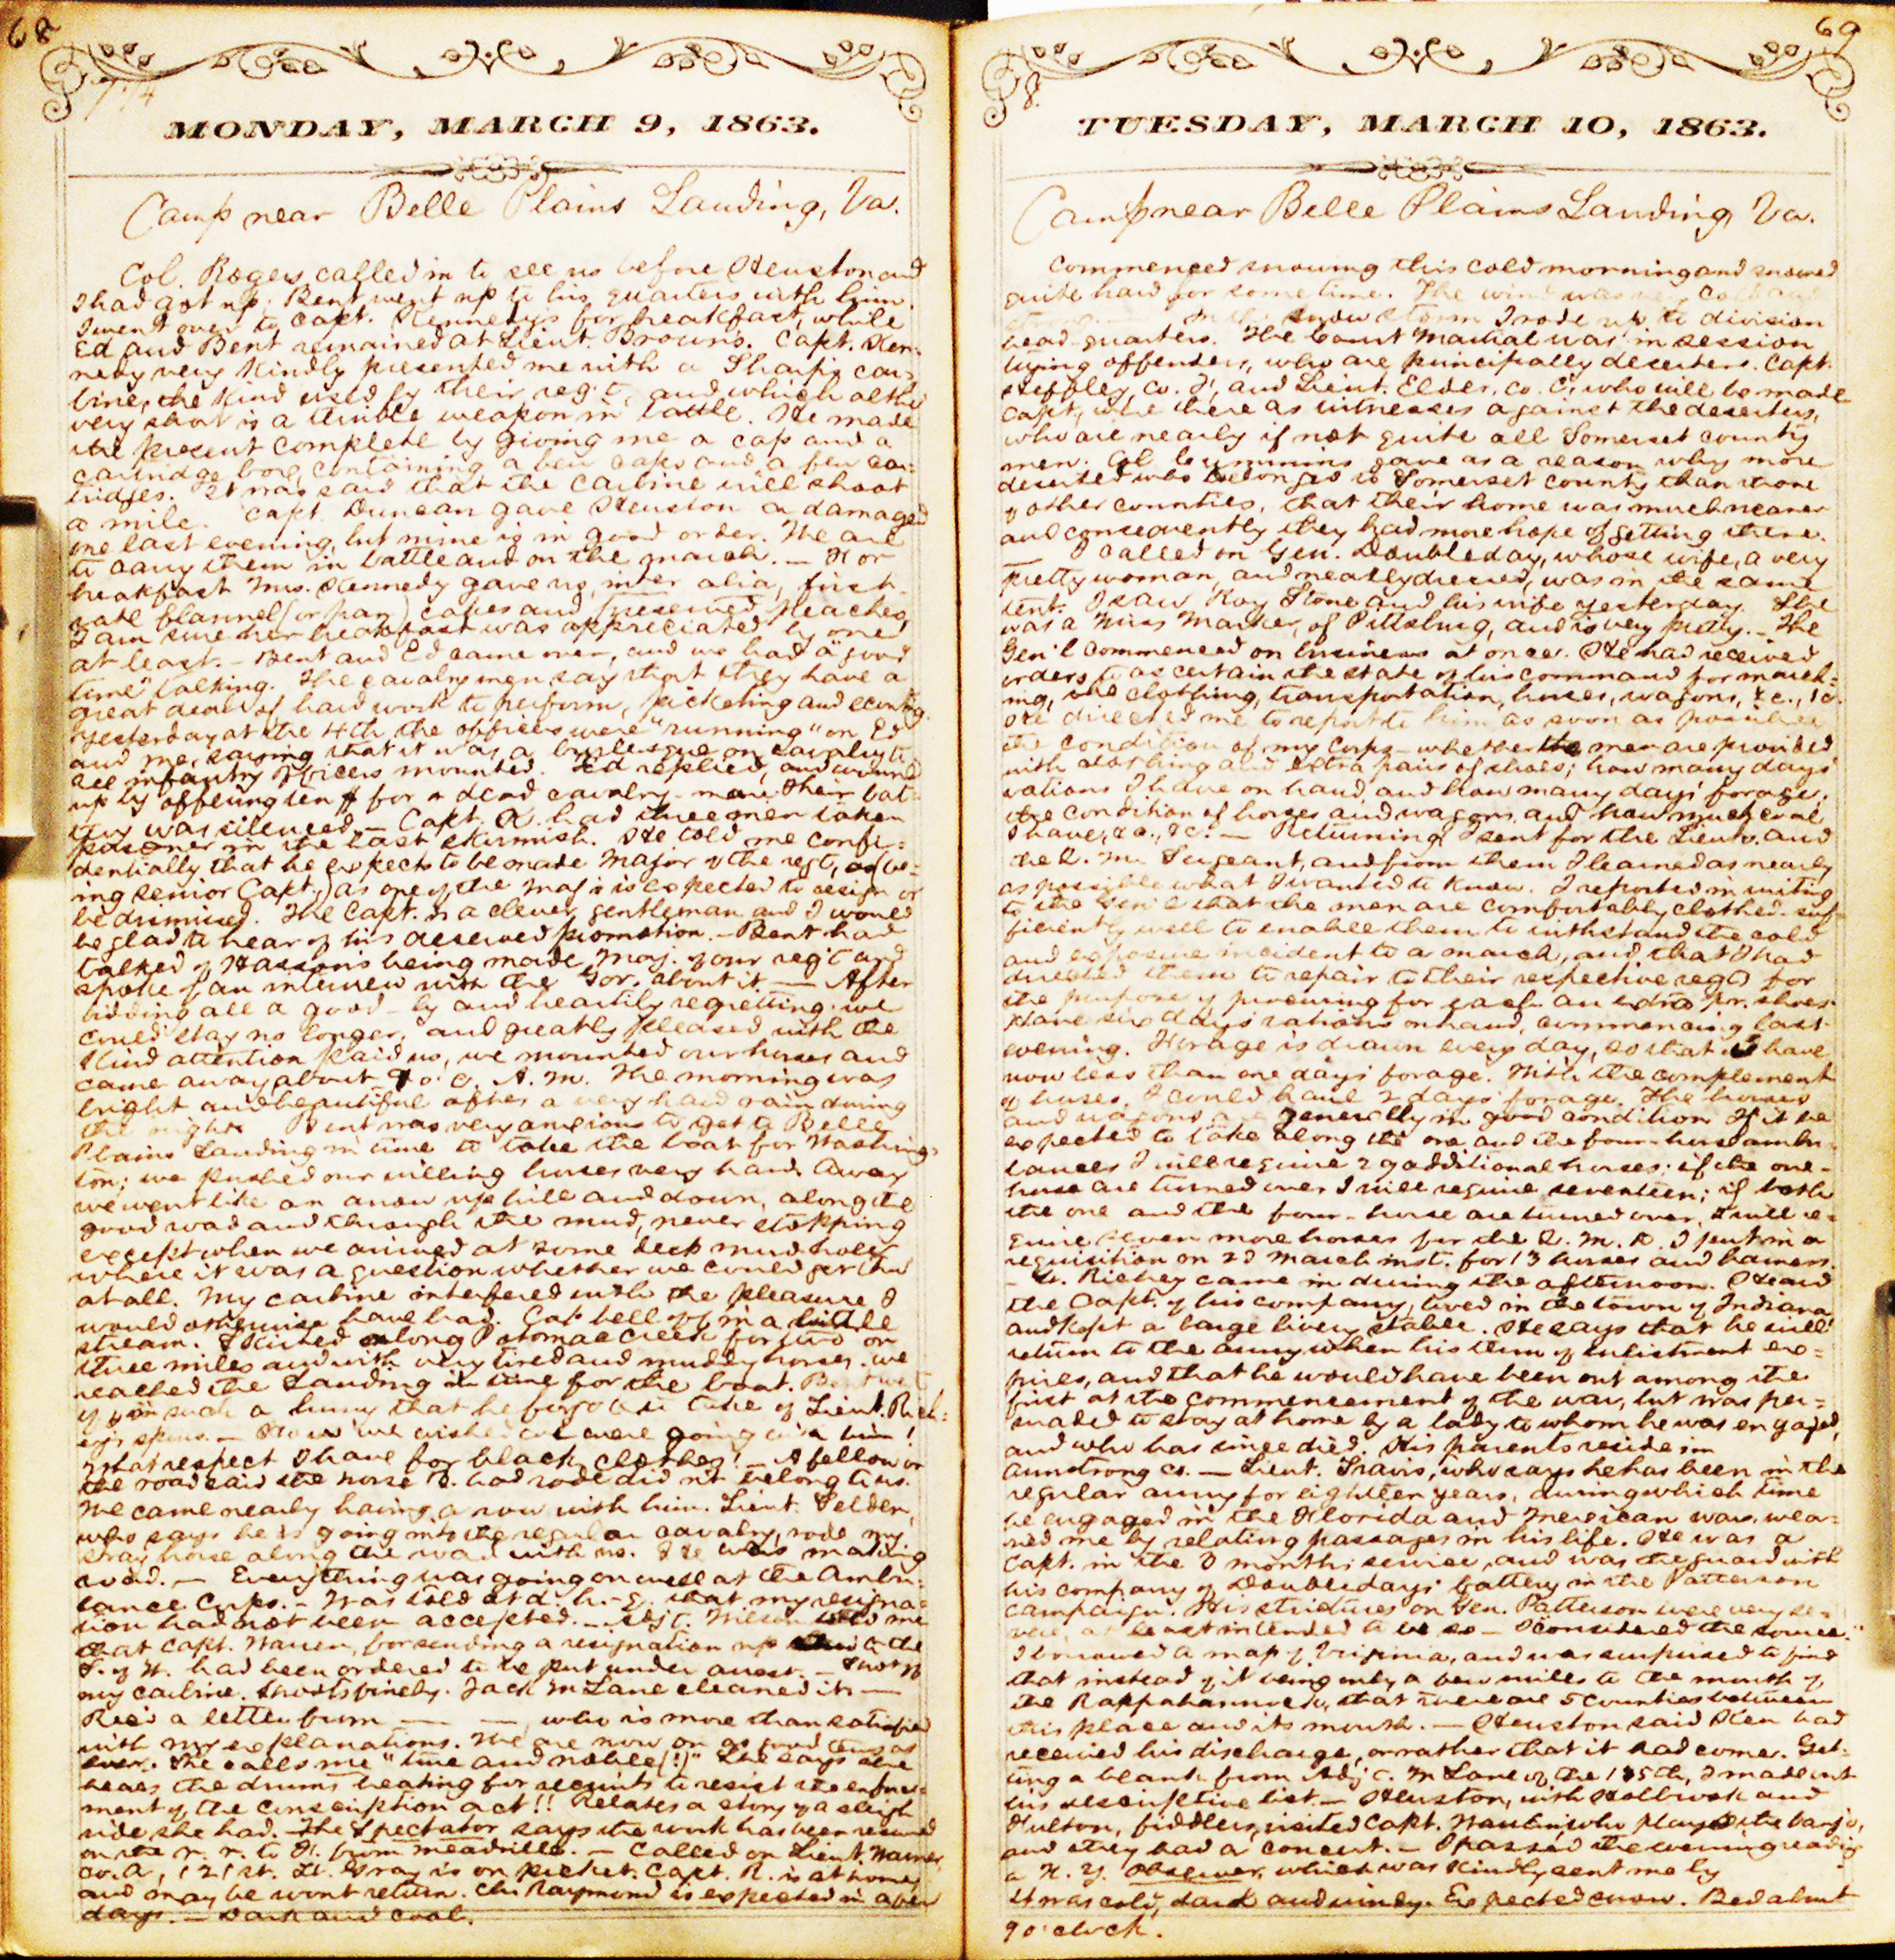 68
MONDAY, MARCH 9, 1863.
Camp near Belle Plains Landing, Va.
Col. Rogers called in to see us before Heuston and
I had got up. Bent went up to his quarters with him.
I went over to Capt. Kennedy's for breakfast, while
Ed and Bent remained at Lieut. Brown's. Capt. Ken-
nedy very kindly presented me with a Sharp's car-
bine, the kind used by their reg't, and which altho'
very short is a terrible weapon in battle. He made
the present complete by giving me a cap and a
cartridge box, containing a few caps and a few car-
tridges. It was said that the carbine will shoot
a mile. Capt. Duncan gave Heuston a damaged
one last evening, but mine is in good order. We are
to carry them in battle and on the march. — For
breakfast Mrs. Kennedy gave us, inter alia, first-
rate flannel (or pan) cakes and preserved peaches,
I am sure her breakfast was appreciated by one
at least. — Bent and Ed came over, and we had a "good
time" talking. The cavalry men say that they have a
great deal of hard work to perform, picketing and scouting.
Yesterday at the 4th, the officers were "running" on Ed
and me, saying that it was a burlesque on cavalry to
see infantry officers mounted. Ed replied, and wound
up by offering ten $ for a dead cavalry-man. Their bat-
tery was silenced. — Capt. K. had three men taken
prisoner in the last skirmish. He told me confi-
dentially that he expects to be made Major of the regt, (as be-
ing senior Capt.) as one of the Maj's is expected to resign or
be dismissed. The Capt. is a clever gentleman and I would
be glad to hear of his deserved promotion. — Bent had
talked of Hasson's being made Maj. of our reg't and
spoke of an interview with the Gov. about it. — After
bidding all a good-by and heartily regretting we
could stay no longer, and greatly pleased with the
kind attention paid us, we mounted our horses and
came away about 9 o. c. A. M. The morning was
bright and beautiful after a very hard rain during
the night. Bent was very anxious to get to Belle
Plains Landing in time to take the boat for Washing-
ton; we pushed our willing horses very hard. Away
we went like an arrow up hill and down, along the
good road and through the mud, never stopping
except when we arrived at some deep mud holes
where it was a question whether we could get thro'
at all. My carbine interfered with the pleasure I
would otherwise have had. Cap fell off in a little
stream. Skirted along Potomac Creek for two or
three miles and with very tired and muddy horses we
reached the Landing in time for the boat. Bent
off in such a hurry that he forgot to take off Lieut. Rich-
ey's spurs. — How we wished we were going with him!
What respect I have for black clothes! — A fellow on
the road said the horse B. had rode did n't belong to us.
We came nearly having a row with him. Lieut. Selden,
who says he is going into the regular cavalry, rode my
stray horse along the road with us. He was making
road. — Everything was going on well at the Ambu-
lance Corps. — Was told at d. h.-q. that my resigna-
tion had not been accepted. — Adj't. Wilson told me
that Capt. Warren, for sending a resignation up to the
S. of W. had been ordered to be put under arrest. — Shot off
my carbine. Shoots finely. Jack M'Lane cleaned it. —
Rec'd a letter from — —, who is more than satisfied
with my explanations. We are now on as good terms as
ever. She calls me "true and noble(!)" She says she
hears the drums beating for recruits to resist the enforce-
ment of the conscription act!! Relates a story of a sleigh
ride she had. The Spectator says the work has been resumed
on the r. r. to F. from Meadville. — Called on Lieut. Warner,
Co. A, 121st. Lt. Gray is on picket. Capt. R. is at home
and may be wont return. Chs Raymond is expected in a few
days. — Dark and cool.
69
8.
TUESDAY, MARCH 10, 1863.
Camp near Belle Plains Landing, Va.
Commenced snowing this cold morning and snowed
quite hard for some time. The wind was cold and
snow storm I rode up to division
head-quarters. The Court Martial was in session
trying offenders, who are principally deserters. Capt.
Heffley, Co. F, and Lieut. Elder, Co. C, who will be made
Capt., were there as witnesses against the deserters,
who are nearly if not quite all Somerset county
men. Col. Cummins gave as a reason why more
deserted who belonged to Somerset county than those
of other counties, that their home was much nearer
and consequently they had more hope of getting there.
— I called on Gen. Doubleday, whose wife, a very
pretty woman, and neatly dressed, was in the same
tent. I saw Roy Stone and his wife yesterday. She
was a Miss Marker, of Pittsburg, and is very pretty. — The
Gen'l commenced on business at once. He had received
orders to ascertain the state of his command for march-
ing, the clothing, transportation, horses, wagons, &c., &c.
He directed me to report to him as soon as possible
the condition of my Corps — whether the men are provided
with clothing and extra pairs of shoes; how many days'
rations I have on hand, and how many days' forage;
the condition of horses and wagons, and how much coal
I have, &c., &c. — Returning I sent for the Lieuts. and
the Q. M. Sergeant, and from them I learned as nearly
as possible what I wanted to know. I reported in writing
to the Gen'l that the men are comfortably clothed — suf-
ficiently well to enable them to withstand the cold
and exposure incident to a march, and that I had
directed them to repair to their respective regts for
the purpose of procuring for each an extra pr. shoes.
Have six days' rations on hand, commencing last
evening. Forage is drawn every day, so that I have
now less than one days' forage. With the complement
of horses, I could haul 2 days' forage. The horses
and wagons are generally in good condition. If it be
expected to take along the one and the four-horse ambu-
lances I will require 29 additional horses; if the one-
horse are turned over I will require seventeen; if both
the one and the four-horse are turned over, I will re-
quire seven more horses for the Q. M. D. I put in a
requisition on 2d March inst. for 13 horses and harness.
— Lt. Richey came in during the afternoon. He and
the Capt. of his company, lived in the town of Indiana
and kept a large livery stable. He says that he will
return to the army when his term of enlistment ex-
pires, and that he would have been out among the
first at the commencement of the war, but was per-
suaded to stay at home by a lady to whom he was engaged,
and who has since died. His parents reside in
Armstrong co. — Lieut. Travis, who says he has been in the
regular army for eighteen years, during which time
he engaged in the Florida and Mexican wars, wea-
ried me by relating passages in his life. He was a
Capt. in the 3 months service, and was the guard with
his company of Doubleday's battery in the Patterson
campaign. His strictures on Gen. Patterson were very se-
vere, at least intended to be so — I considered the source.
I borrowed a map of Virginia, and was surprised to find
that instead of it being only a few miles to the mouth of
the Rappahannock, that there are 5 counties between
this place and its mouth. — Heuston said Ken had
received his discharge, or rather that it had come. Get-
ting a blank from Adj't. M'Lane of the 135th, I made out
his descriptive list. — Heuston, with Holbrook and
Hulton, fiddlers, visited Capt. who plays the banjo,
and they had a concert. — I passed the evening reading
a N. Y. Observer, which was kindly sent me by
It was cold, dark and windy. Expected snow. Bed about
9 o'clock.